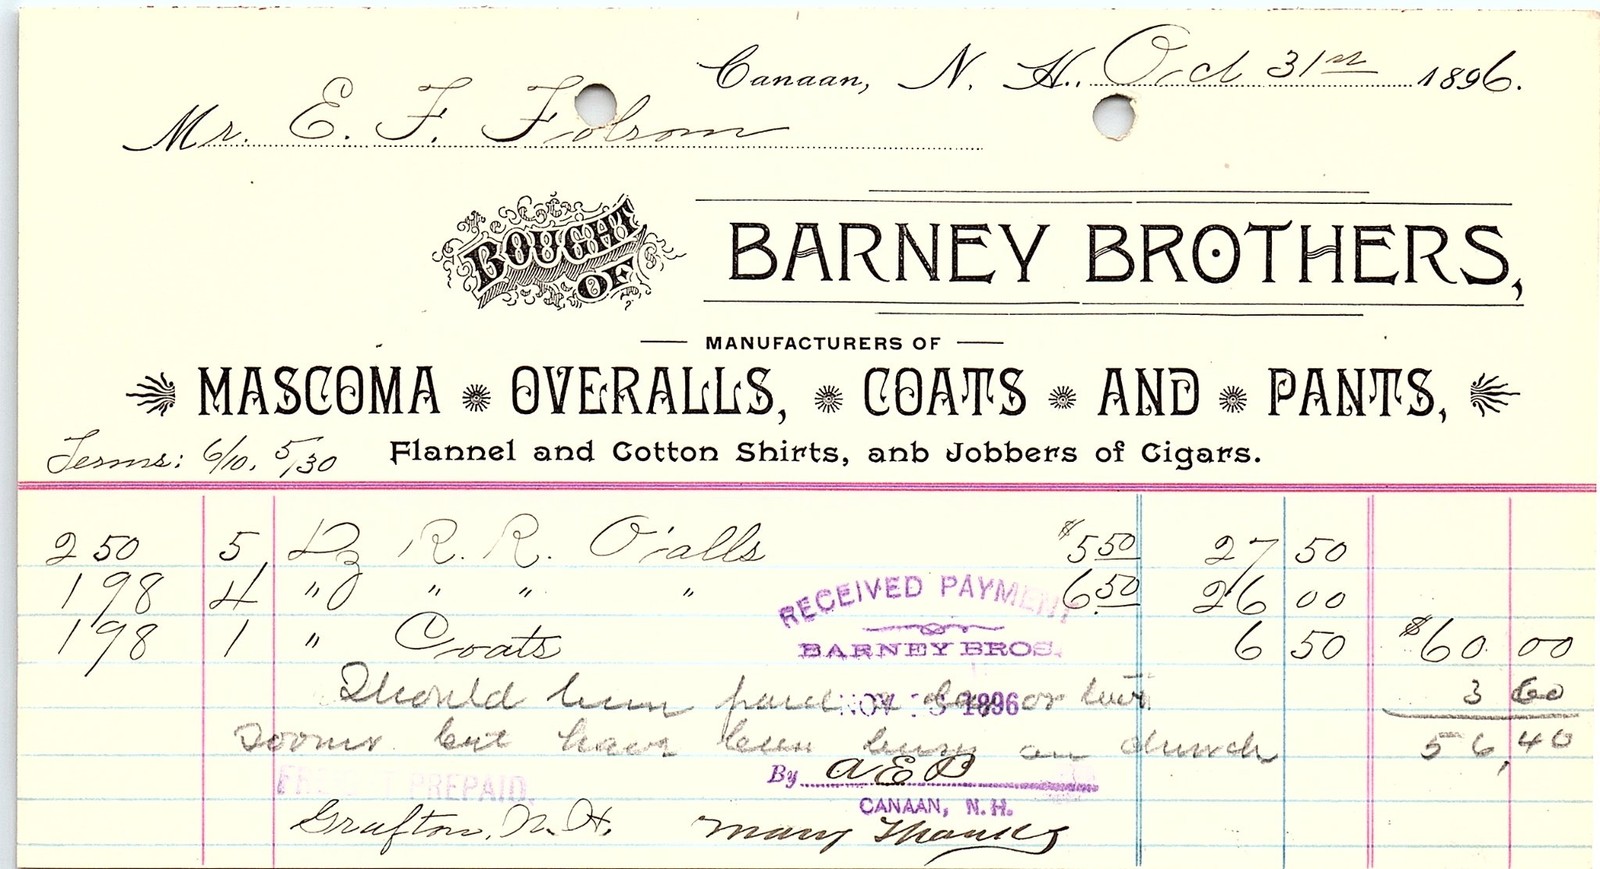 Canaan, N. H. Oct 31st 1896.
Mr. E. F. Folsom
BOUGHT OF BARNEY BROTHERS,
MANUFACTURERS OF
MASCOMA OVERALLS, COATS AND PANTS,
Terms: 6/10. 5/30 Flannel and Cotton Shirts, anb Jobbers of Cigars.
250 5 Dz R. R. O'alls $5 50 27 50
198 4 " " " " 6 50 26 00
198 1 " Coats 6 50 $60 00
RECEIVED PAYMENT
BARNEY BROS.
Should been paid a day or two 3 60
NOV 1896
sooner but have been busy on church 56,40
PREPAID.
By A E B
CANAAN, N. H.
Grafton, N. H. Many Thanks